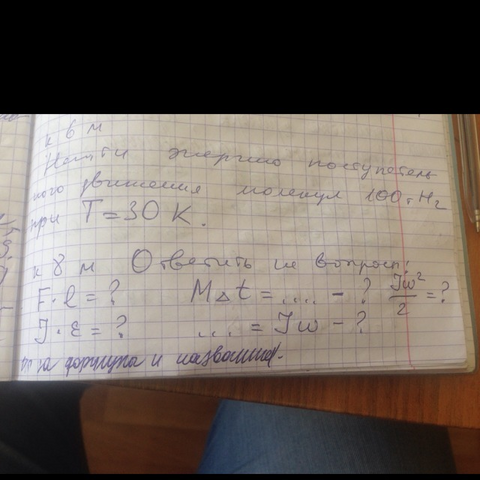 к 6 м
Найти энергию поступатель
ного движения молекул 100 г H2
при T = 30 K.
к 8 м Ответить на вопросы:
F·l = ? MΔt = .... - ? Jω²/2 = ?
J·ε = ? .... = Jω - ?
формула и название.